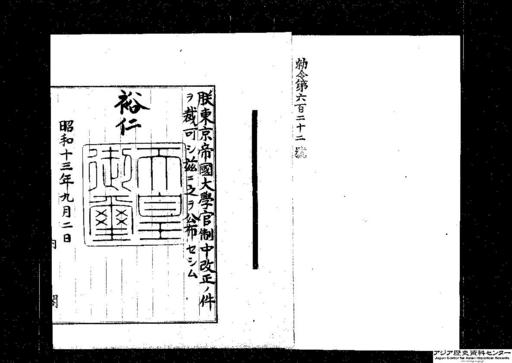 勅令第六百二十二號
朕東京帝國大學官制中改正ノ件
ヲ裁可シ茲ニ之ヲ公布セシム
裕仁
天皇
御璽
昭和十三年九月二日
内閣
アジア歴史資料センター
Japan Center for Asian Historical Records